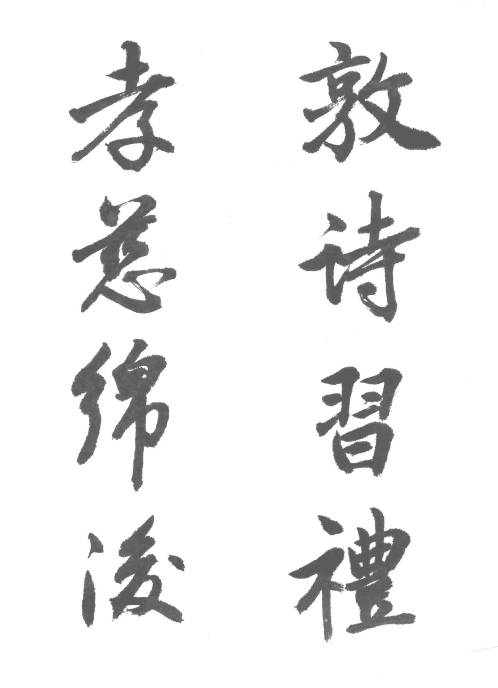 敦詩習禮
孝慈綿後